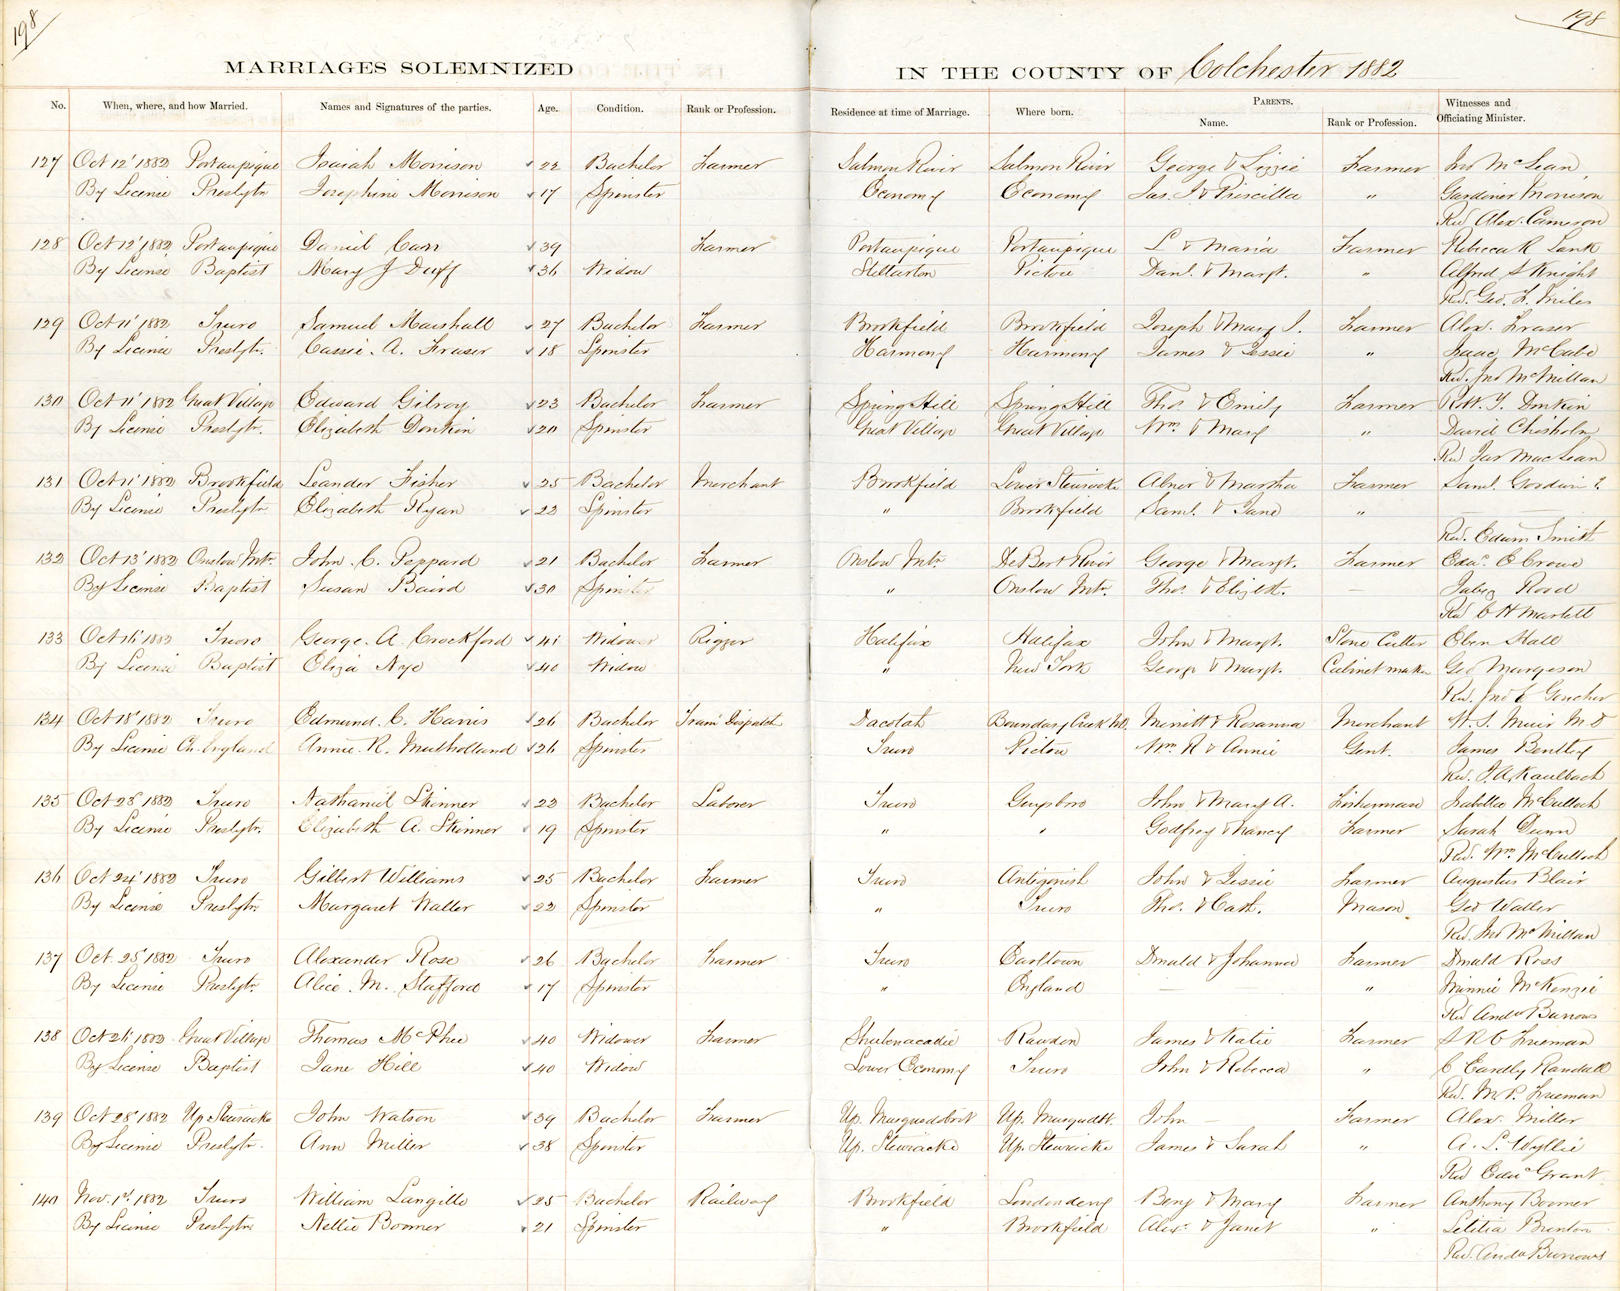 198
198
MARRIAGES SOLEMNIZED IN THE COUNTY OF Colchester 1882
No. When, where, and how Married. Names and Signatures of the parties. Age. Condition. Rank or Profession. Residence at time of Marriage. Where born. PARENTS. Name. Rank or Profession. Witnesses and Officiating Minister.
127 Oct 12' 1882 Portaupique Isaiah Morrison 22 Bachelor Farmer Salmon River Salmon River George & Lizzie Farmer Jno McLean
By License Presbytn Josephine Morrison 17 Spinster Economy Economy Jas. I & Priscilla " Gardiner Morrison
Rev Alex. Cameron
128 Oct 12' 1882 Portaupique Daniel Carr 39 Farmer Portaupique Portaupique L & Maria Farmer Rebecca R Lank
By License Baptist Mary J Duff 36 Widow Stellarton Pictou Danl. & Margt. " Alfred S Knight
Rev. Geo. F. Miles
129 Oct 11' 1882 Truro Samuel Marshall 27 Bachelor Farmer Brookfield Brookfield Joseph & Mary J. Farmer Alex. Fraser
By License Presbytr. Cassie A. Fraser 18 Spinster Harmony Harmony James & Jessie " Isaac McCabe
Rev. Jno McMillan
130 Oct 11' 1882 Great Village Edward Gilroy 23 Bachelor Farmer Spring Hill Spring Hill Thos. & Emily Farmer Robt. Y. Donkin
By License Presbytr. Elizabeth Donkin 20 Spinster Great Village Great Village Wm & Mary " David Chisholm
Rev Jas MacLean
131 Oct 11' 1882 Brookfield Leander Fisher 25 Bachelor Merchant Brookfield Lower Stewiacke Abner & Martha Farmer Saml. Goodwin ?
By License Presbytn Elizabeth Ryan 22 Spinster " Brookfield Saml. & Jane "
Rev. Edwin Smith
132 Oct 13' 1882 Onslow Mtn. John C. Peppard 21 Bachelor Farmer Onslow Mtn DeBert River George & Margt. Farmer Edwd. O Crowe
By License Baptist Susan Baird 30 Spinster " Onslow Mtn. Thos & Elizbth. — Jabez Rood
Rev C H Martell
133 Oct 16' 1882 Truro George A. Crockford 41 Widower Rigger Halifax Halifax John & Margt. Stone Cutter Eben Hall
By License Baptist Eliza Nye 40 Widow " New York George & Margt. Cabinet maker Geo Margeson
Rev. Jno E Goucher
134 Oct 18' 1882 Truro Edmund C. Harris 26 Bachelor Train Dispatch Dacotah Boundary Creek NB. Merritt & Rosanna Merchant W. S. Muir M D
By License Ch. England Annie R. Mulholland 26 Spinster Truro Pictou Wm R & Annie Gent. James Bentley
Rev. J. A. Kaulbach
135 Oct 28' 1882 Truro Nathaniel Skinner 22 Bachelor Laborer Truro Guysboro John & Mary A. Fisherman Isabella McCulloch
By License Presbytr. Elizabeth A. Skinner 19 Spinster " " Godfrey & Nancy Farmer Sarah Dunn
Rev. Wm McCulloch
136 Oct 24' 1882 Truro Gilbert Williams 25 Bachelor Farmer Truro Antigonish John & Jessie Farmer Augustus Blair
By License Presbytr. Margaret Waller 22 Spinster " Truro Thos. & Cath. Mason Geo Waller
Rev. Jno McMillan
137 Oct. 25' 1882 Truro Alexander Rose 26 Bachelor Farmer Truro Earltown Donald & Johanna Farmer Donald Ross
By License Presbytr. Alice M. Stafford 17 Spinster " England — — " Minnie McKenzie
Rev Andw Burrows
138 Oct 26' 1882 Great Village Thomas McPhee 40 Widower Farmer Shubenacadie Rawdon James & Katie Farmer S R C Freeman
By License Baptist Jane Hill 40 Widow Lower Economy Truro John & Rebecca " C Eardly Randall
Rev. M. P. Freeman
139 Oct 28' 1882 Up Stewiacke John Watson 39 Bachelor Farmer Up. Musquodoboit Up. Musquodbt. John — Farmer Alex. Miller
By License Presbytr. Ann Miller 38 Spinster Up. Stewiacke Up. Stewiacke James & Sarah " A. L. Wyllie
Rev Edwd Grant
140 Nov. 1st. 1882 Truro William Langille 25 Bachelor Railway Brookfield Londonderry Benj & Mary Farmer Anthony Boomer
By License Presbytn Nellie Boomer 21 Spinster " Brookfield Alexr. & Janet " Letitia Brenton
Rev. Andw Burrows